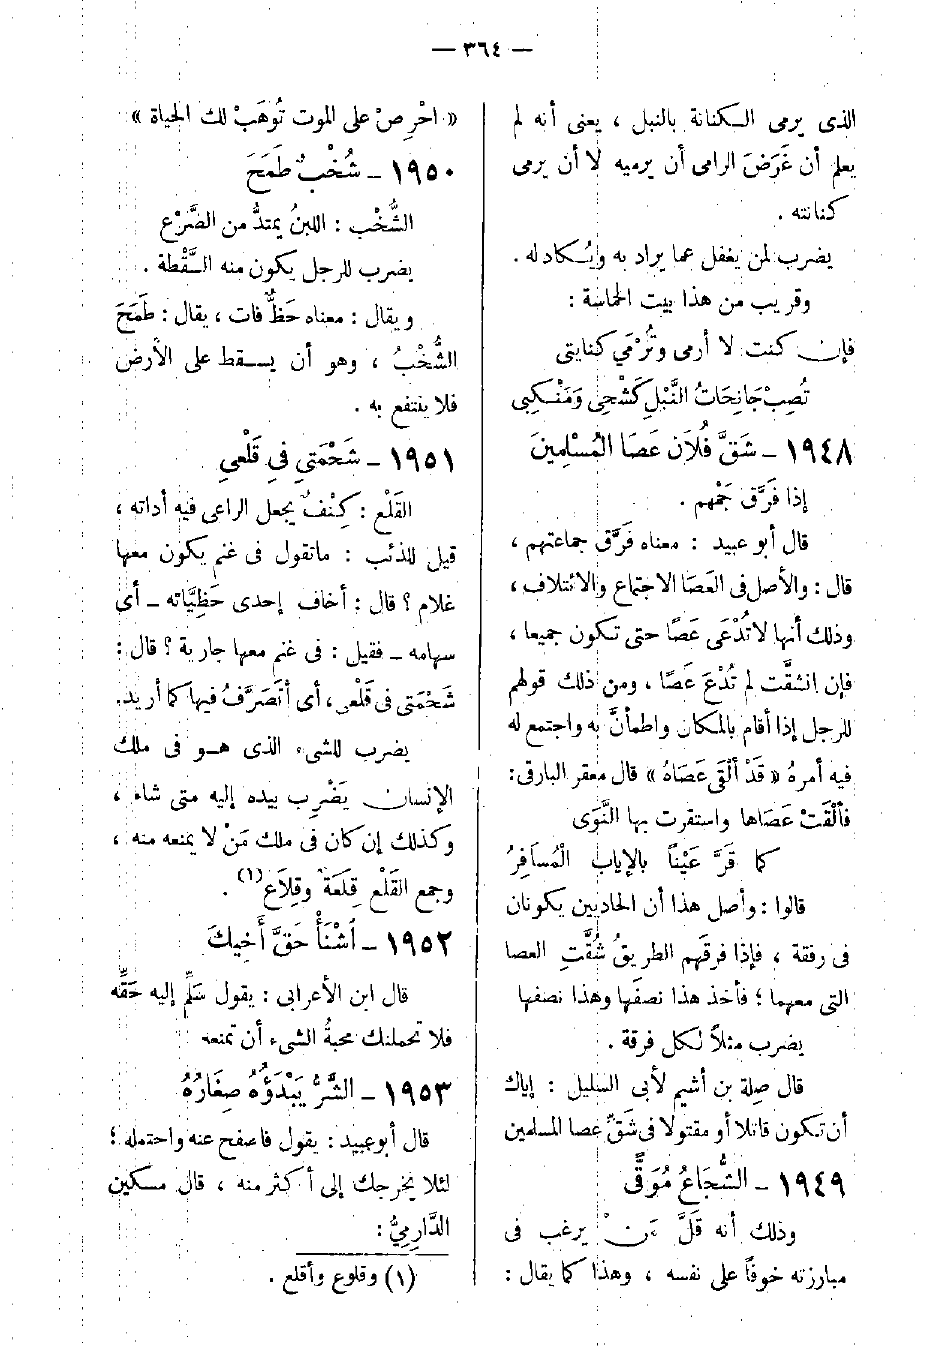 — ٣٦٤ —
الذى يرمى الكنانة بالنبل ، يعنى أنه لم
يعلم أن غَرَضَ الرامى أن يرميه لا أن يرمى
كنانته .
يضرب لمن يغفل عما يراد به ويُكاد له .
وقريب من هذا بيت الحماسة :
فإن كنت لا أرمى وتُرْمَي كنايتى
تُصِبْ جَانِحَاتُ النَّبْلِ كَشْحِى وَمَنْكِبِى
١٩٤٨ – شَقَّ فُلَان عَصَا الْمُسْلِمِينَ
إذا فَرَّق جَمْهم .
قال أبو عبيد : معناه فَرَّق جماعتهم ،
قال : والأصل فى العَصَا الاجتماع والائتلاف ،
وذلك أنها لا تُدْعَى عَصًا حتى تكون جميعا ،
فإن انشقَّت لم تُدْعَ عَصًا ، ومن ذلك قولهم
للرجل إذا أقام بالمكان واطمأنَّ به واجتمع له
فيه أمرهُ « قَدْ ألْقَى عَصَاهُ » قال معقر البارقى :
فألْقَتْ عَصَاها واستقرت بها النَّوَى
كما قَرَّ عَيْناً بالإياب الْمُسَافِرُ
قالوا : وأصل هذا أن الحاديين يكونان
فى رفقة ، فإذا فرقَهم الطريقُ شُقَّتِ العصا
التى معهما ؛ فأخذ هذا نصفَها وهذا نصفها
يضرب مثلاً لكل فرقة .
قال صِلة بن أشيم لأبى السليل : إياك
أن تكون قاتلا أو مقتولا فى شَقِّ عصا المسلمين
١٩٤٩ – الشُّجَاعُ مُوَقًّى
وذلك أنه قَلَّ مَنْ يرغب فى
مبارزته خوفاً على نفسه ، وهذا كما يقال :
« احْرِصْ على الموت تُوهَبْ لك الحياة »
١٩٥٠ – شُخْبٌ طَمَحَ
الشُّخْب : اللبنُ يمتدُّ من الضَّرْع
يضرب للرجل يكون منه السَّقْطة .
ويقال : معناه حَظٌّ فات ، يقال : طَمَحَ
الشُّخْبُ ، وهو أن يسقط على الأرض
فلا ينتفع به .
١٩٥١ – شَحْمَتِي فِي قَلْعِي
القَلْع : كِنْفٌ يجعل الراعى فيه أداته ،
قيل للذئب : ماتقول فى غنم يكون معها
غلام ؟ قال : أخاف إحدى حَظِيَّاته – أى
سهامه – فقيل : فى غنم معها جارية ؟ قال :
شَحْمَتى فى قَلْعى ، أى أتَصَرَّفُ فيها كما أريد .
يضرب للشىء الذى هو فى ملك
الإنسان يَضْرِب بيده إليه متى شاء ،
وكذلك إن كان فى ملك مَنْ لا يمنعه منه ،
وجمع القَلْع قِلَعَةٌ وقِلَاع (١) .
١٩٥٢ – اَشْنَأْ حَقَّ أَخِيكَ
قال ابن الأعرابى : يقول سَلِّم إليه حَقَّه
فلا تحملنك محبةُ الشىء أن تمنعه
١٩٥٣ – الشَّرُّ يَبْدَؤُهُ صِغَارُهُ
قال أبو عبيد : يقول فاصفح عنه واحتمله ؛
لئلا يخرجك إلى أكثر منه ، قال مسكين
الدَّارِمِىُّ :
(١) وقلوع وأقلع .